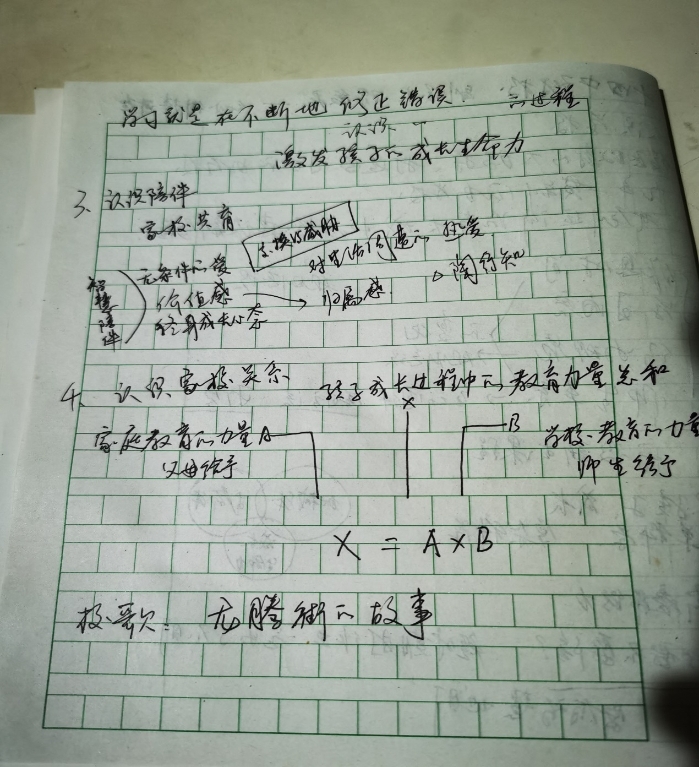 学习就是在不断地修正错误的过程
认识一
激发孩子的成长生命力
3、认识陪伴
家校共育
对生活创造的热爱
智慧陪伴
无条件的爱
价值感 → 归属感
陶行知
终身成长心态
4、认识家校关系 孩子成长过程中的教育力量总和
X
家庭教育的力量A
B 学校教育的力量
父母给予
师生给予
X = A×B
校歌: 龙腾街的故事